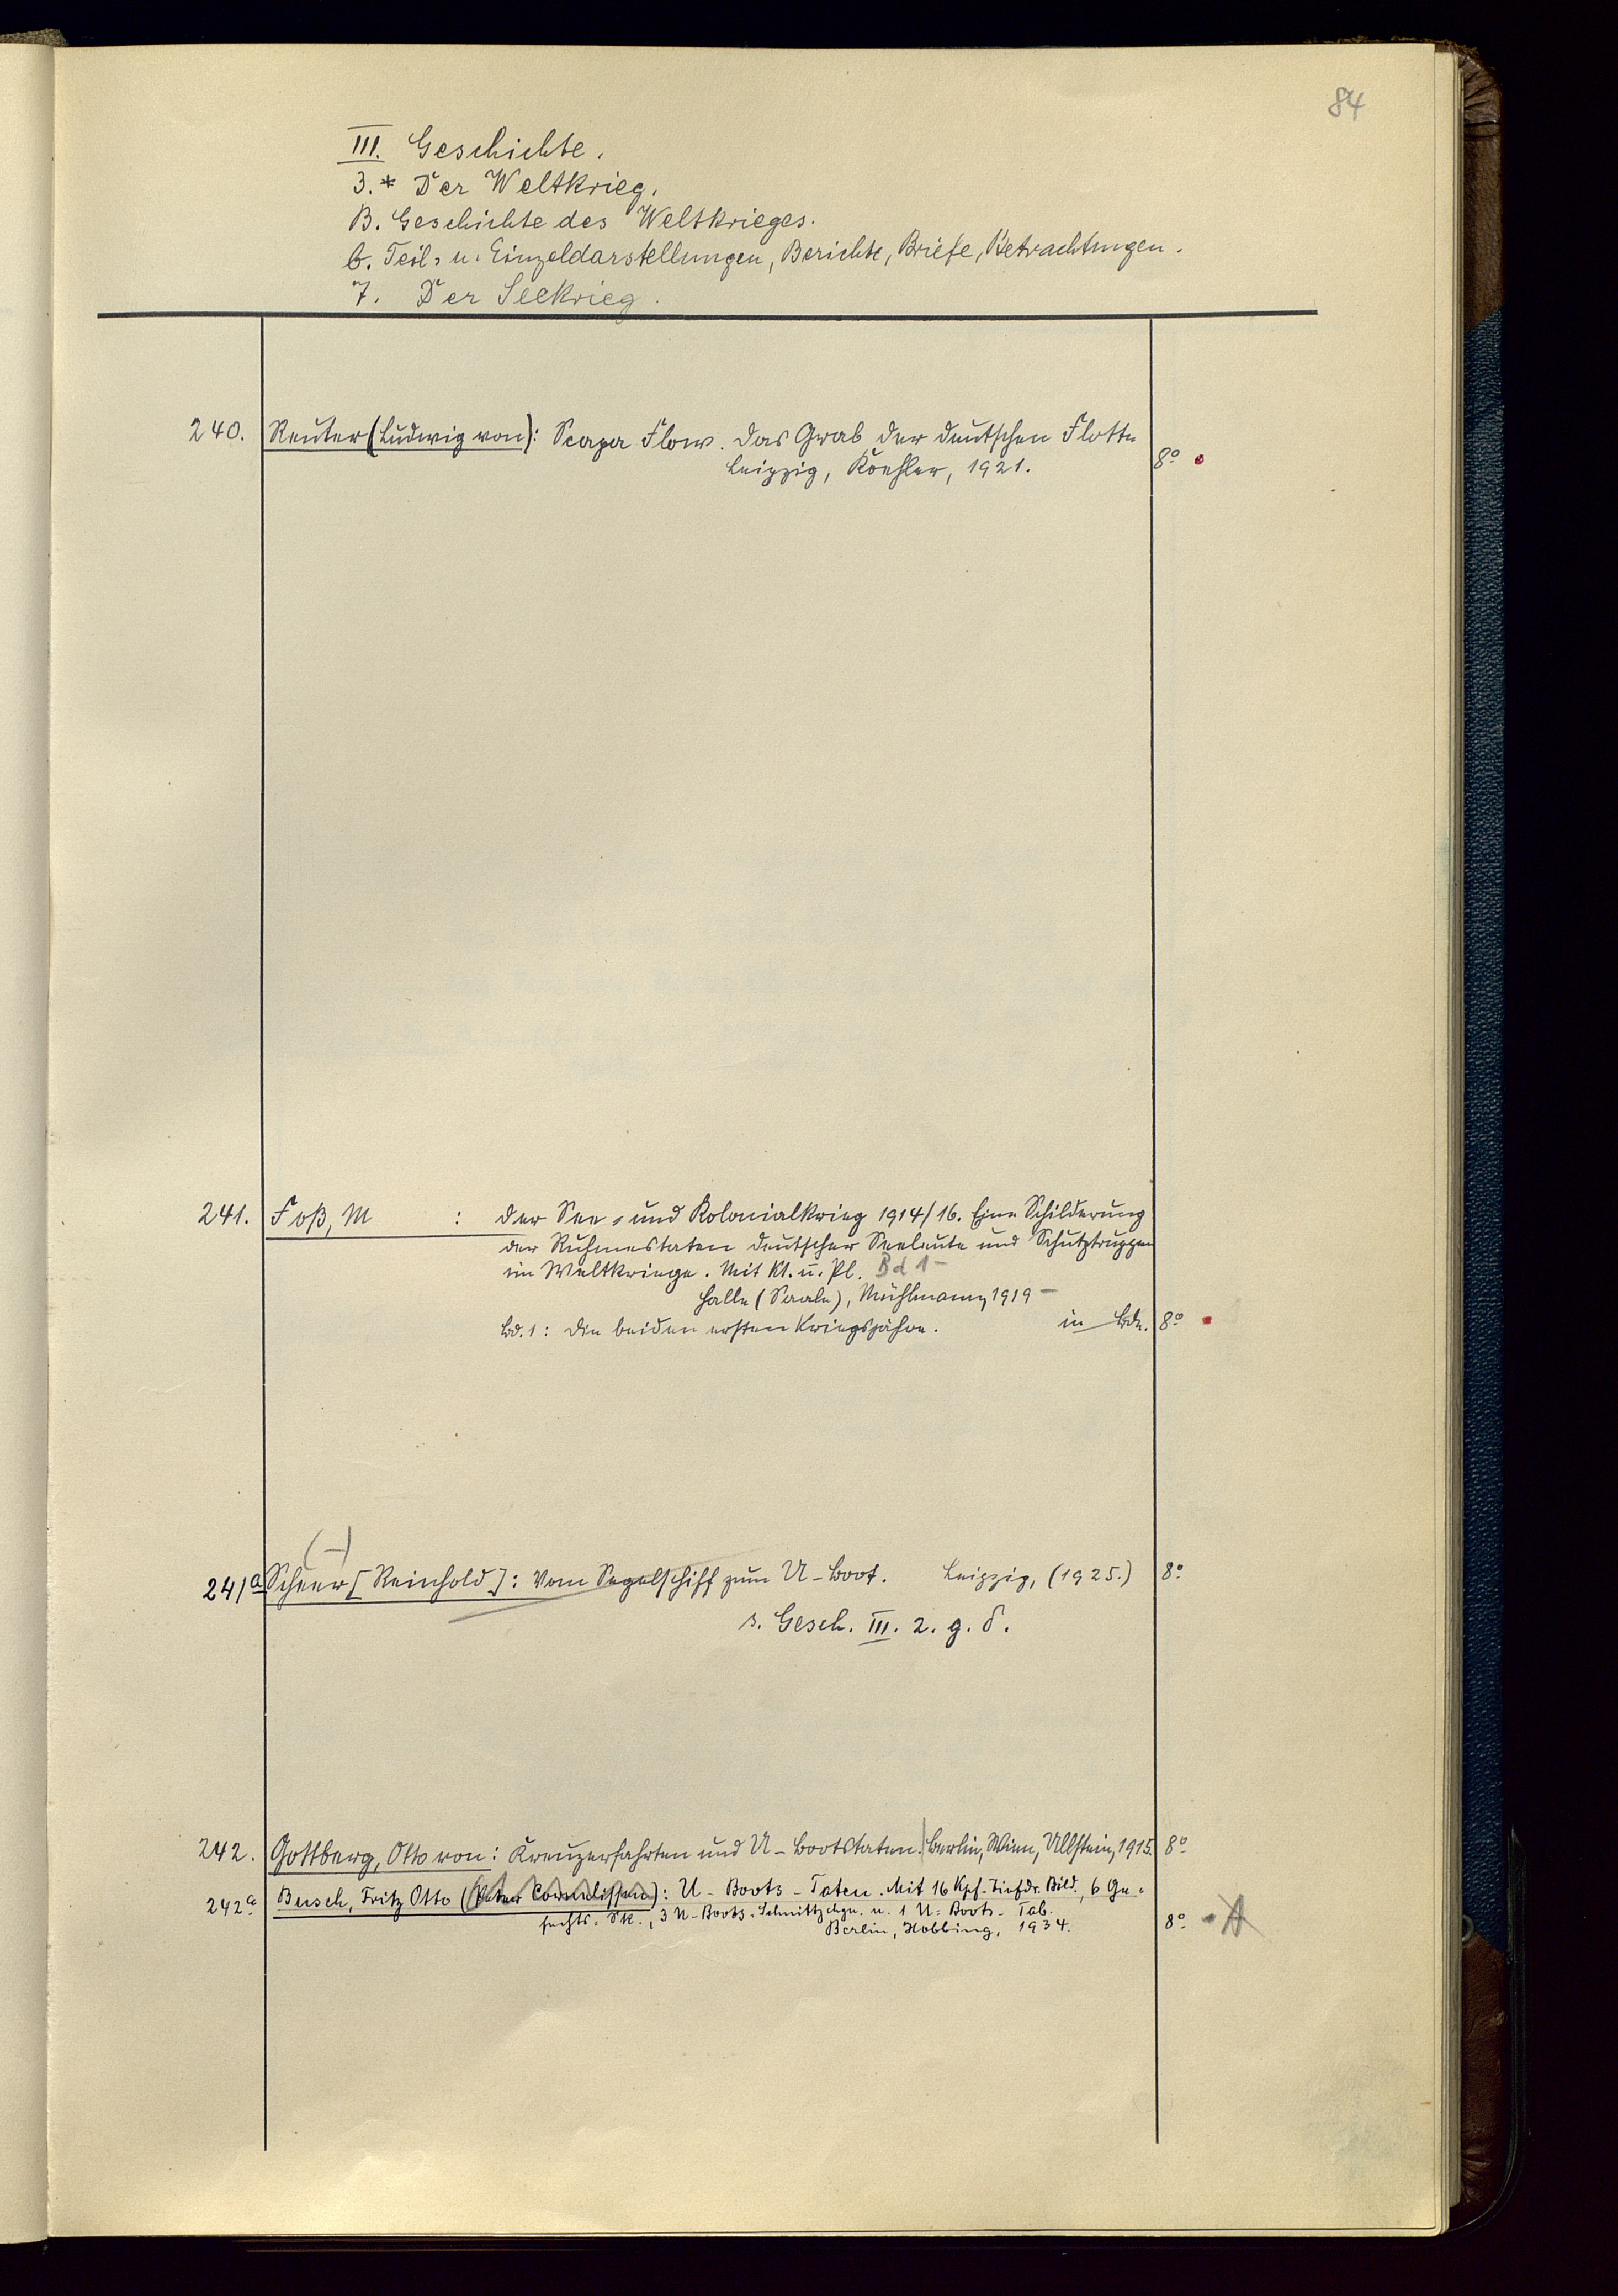 84
III. Geschichte.
3.* Der Weltkrieg.
B. Geschichte des Weltkrieges.
b. Teil- u. Einzeldarstellungen, Berichte, Briefe, Betrachtungen.
7. Der Seekrieg.
240. Reuter (Ludwig von): Scapa Flow. Das Grab der deutschen Flotte
Leipzig, Koehler, 1921. 8°
241. Foß, M : Der See- und Kolonialkrieg 1914/16. Eine Schilderung
der Ruhmestaten deutscher Seeleute und Schutztruppen
im Weltkriege. Mit Kt. u. Pl. Bd 1-
Halle (Saale), Mühlmann, 1919-
Bd. 1: Die beiden ersten Kriegsjahre. in Bde. 8°
(-)
241a Scheer [Reinhold]: Vom Segelschiff zum U-Boot. Leipzig, (1925.) 8°
s. Gesch. III. 2. g. δ.
242. Gottberg, Otto von: Kreuzerfahrten und U-Bootstaten. Berlin, Wien, Ullstein, 1915. 8°
242a Busch, Fritz Otto (Peter Cornelissen): U-Boots-Taten. Mit 16 Kpf.-Tiefdr. Bild., 6 Ge-
fechts-Sk., 3 U-Boots-Schnittzchgn. u. 1 U-Boots-Tab.
Berlin, Hobbing, 1934. 8° A